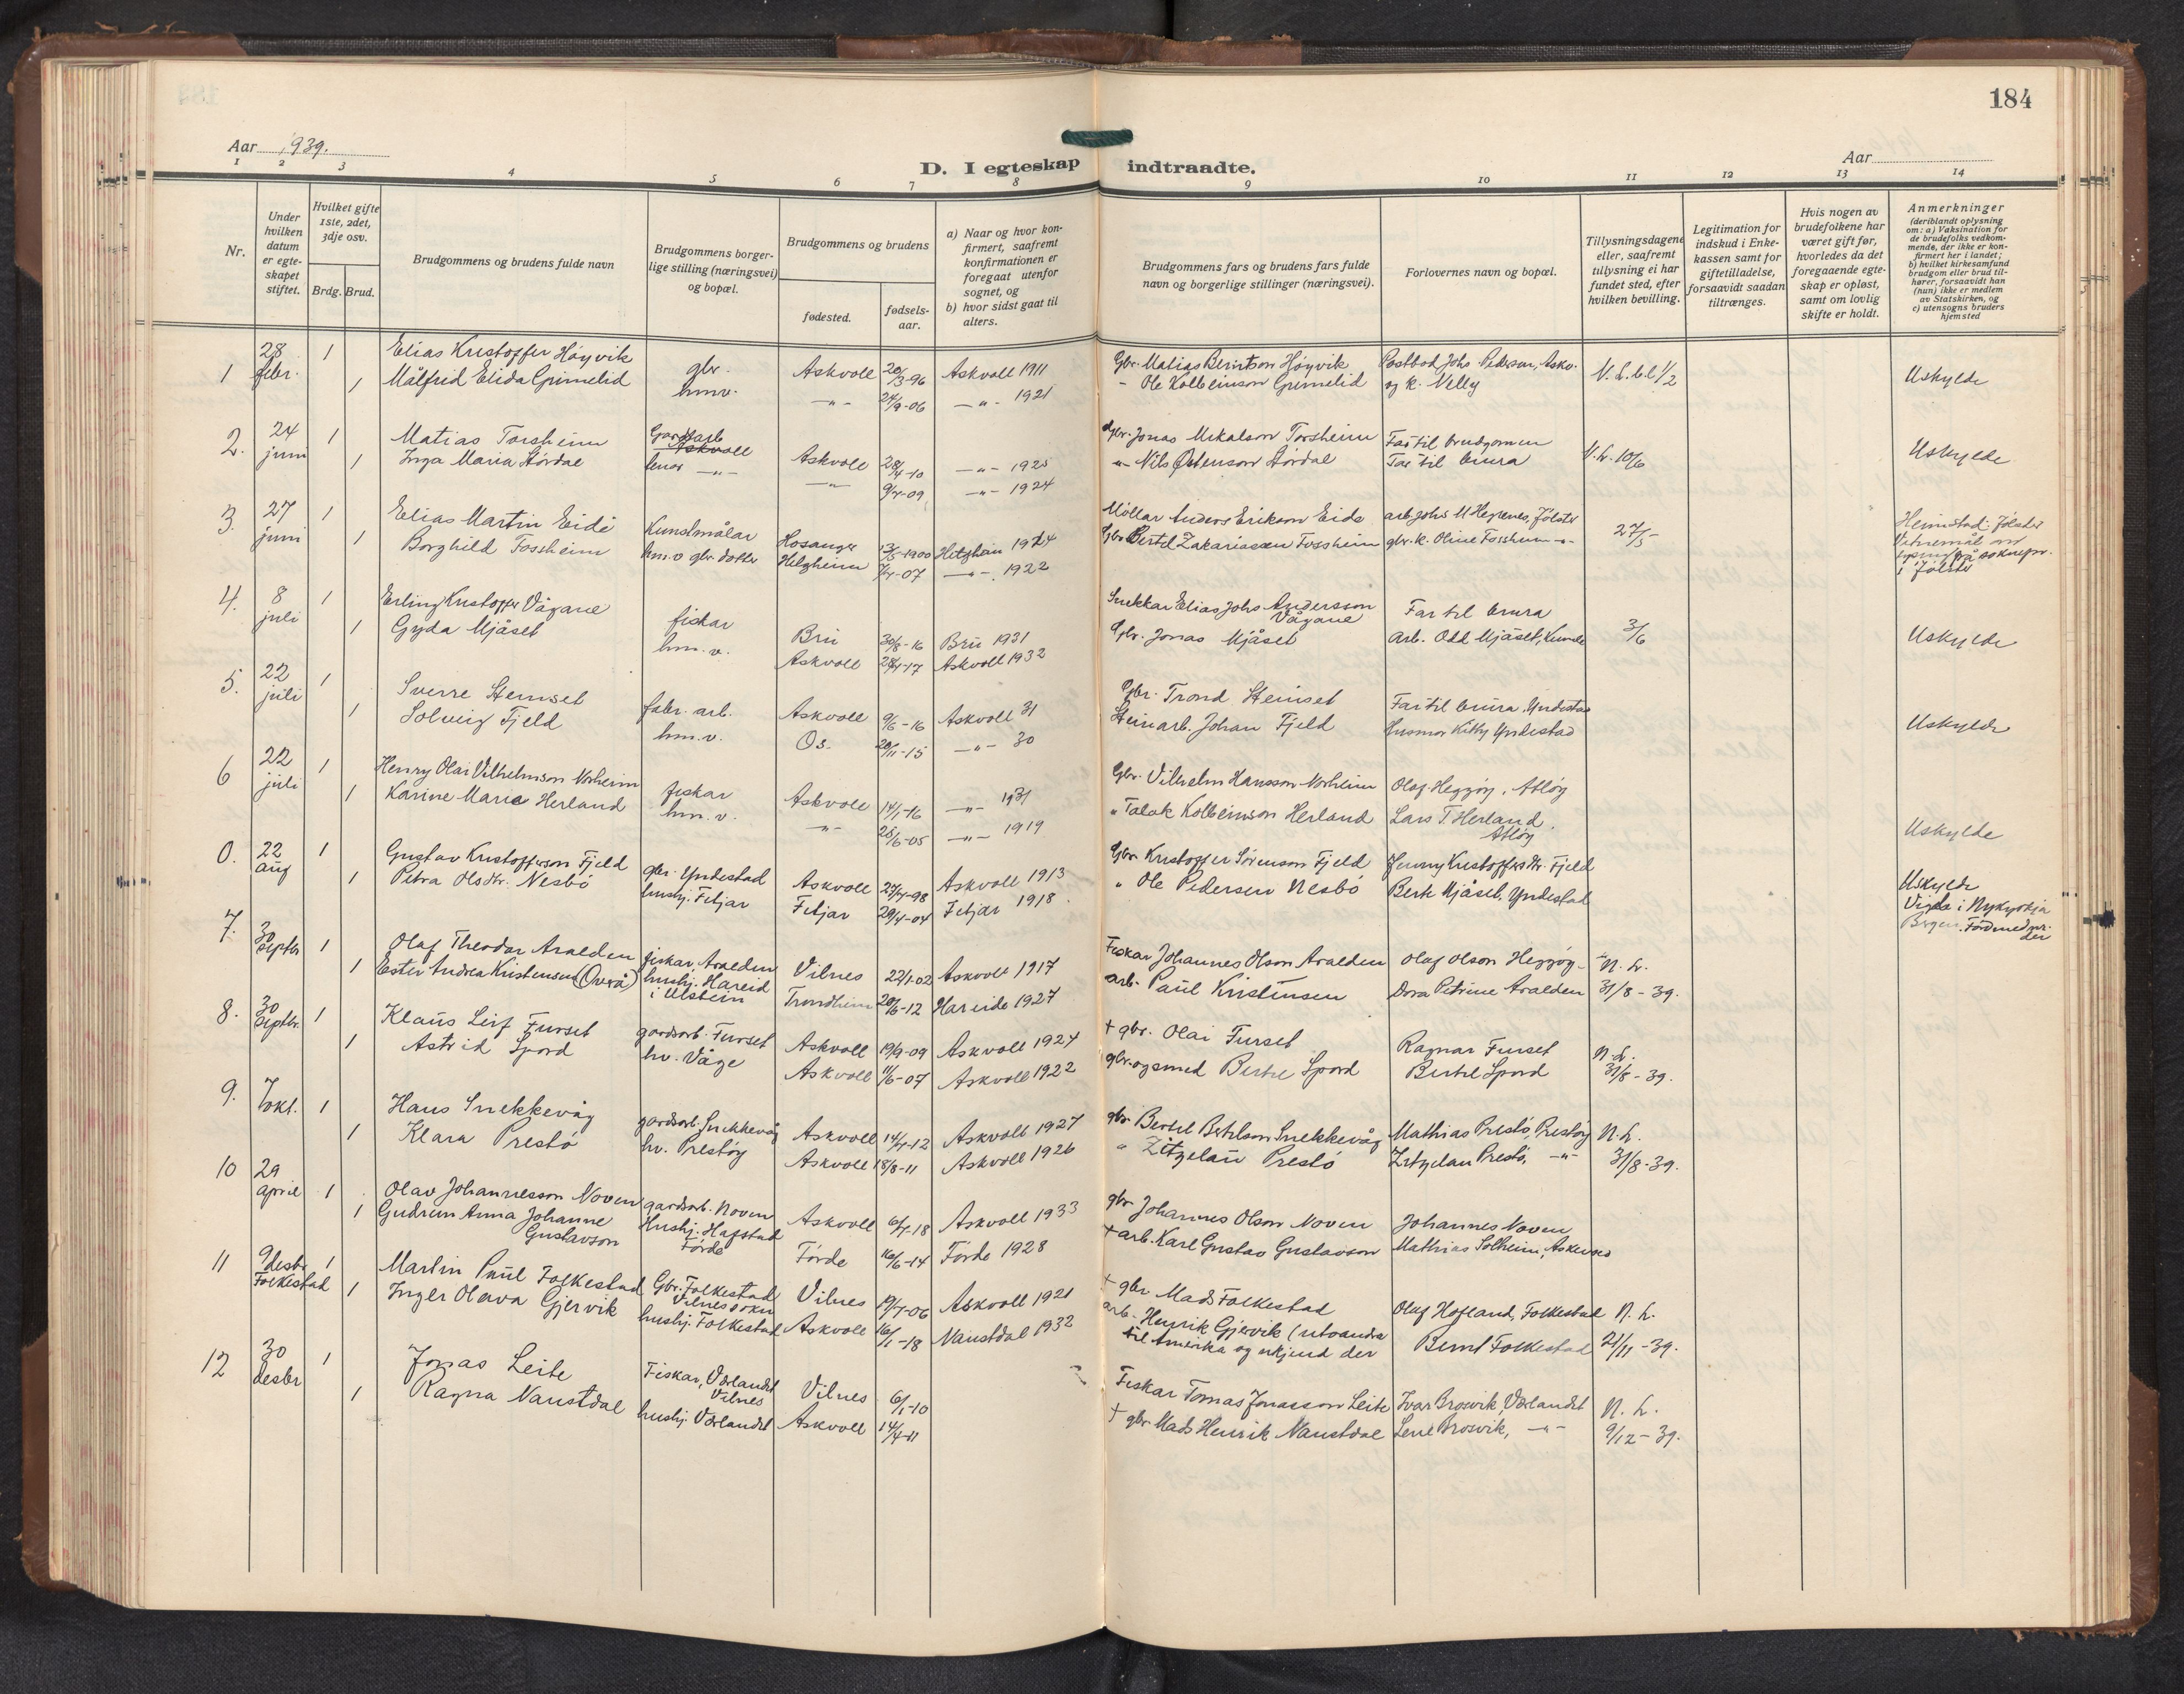 184
Aar 1939.
D. I egteskap indtraadte.
Aar
1 2 3 4 5 6 7 8 9 10 11 12 13 14
Nr.
Under hvilken datum er egteskapet stiftet.
Hvilket gifte 1ste, 2det, 3dje osv.
Brdg. Brud.
Brudgommens og brudens fulde navn
Brudgommens borgerlige stilling (næringsvei) og bopæl.
Brudgommens og brudens
fødested.
fødselsaar.
a) Naar og hvor konfirmert, saafremt konfirmationen er foregaat utenfor sognet, og
b) hvor sidst gaat til alters.
Brudgommens fars og brudens fars fulde navn og borgerlige stillinger (næringsvei).
Forlovernes navn og bopæl.
Tillysningsdagene eller, saafremt tillysning ei har fundet sted, efter hvilken bevilling.
Legitimation for indskud i Enkekassen samt for giftetilladelse, forsaavidt saadan tiltrænges.
Hvis nogen av brudefolkene har været gift før, hvorledes da det foregaaende egteskap er opløst, samt om lovlig skifte er holdt.
Anmerkninger (deriblandt oplysning om: a) Vaksination for de brudefolks vedkommende, der ikke er konfirmert her i landet; b) hvilket kirkesamfund brudgom eller brud tilhører, forsaavidt han (hun) ikke er medlem av Statskirken, og c) utensogns bruders hjemsted
1 28 febr. 1 Elias Kristoffer Høyvik gbr. Askvoll 20/3-96 Askvoll 1911 Gbr. Matias Berintson Høyvik Postbod Johs Pedersen, Askv.
1 Målfrid Elida Grimelid hmv. -"- 24/9-06 -"- 1921 - Ole Kolbeinson Grimelid og k. Nelly Uskylde
2. 24 juni 1 Matias Torsheim Gardsarb Askvoll Askvoll 28/4-10 -"- 1925 Gbr. Jonas Mikalson Torsheim Far til brudgomen N.L. 10/6
1 Inga Maria Stórdal -"- -"- 9/4-09 -"- 1924 -"- Nils Østenson Stórdal Far til brura Uskylde
3. 27 juni 1 Elias Martin Eide Kunstmålar Hosanger 13/5-1900 Helgheim 1914 Møllar Anders Erikson Eide arb. Johs M Hegrenes, Jølster 27/5
1 Borghild Fossheim hm.v gbr. dotter Helgheim 7/4-07 -"- 1922 Gbr. Bertel Zakariassen Fossheim gbr. k. Oline Fossheim -"-
Heimstad: Jølster
i Jølster
4. 8 juli 1 Erling Kristoffer Vågane fiskar Bru 30/8-16 Bru 1931 Snekkar Elias Johs Andersson Vågane Far til brura 3/6
1 Gyda Mjåset hm.v. Askvoll 28/4-17 Askvoll 1932 Gbr. Jonas Mjåset arb. Odd Mjåset, Uskylde
5. 22 juli 1 Sverre Stemset fabr. arb. Askvoll 9/6-16 Askvoll 31 Gbr. Trond Steinset Far til brura, Yndestad
1 Solveig Fjeld hm.v. Os. 20/11-15 -"- 30 Steinarb. Johan Fjeld Husmor Kitty Yndestad Uskylde
6 22 juli 1 Henry Olai Vilhelmson Norheim fiskar Askvoll 14/1-16 -"- 1931 Gbr. Vilhelm Hansson Norheim Olaf Heggøy, Atløy
1 Karine Marie Herland hm.v. -"- 25/6-05 -"- 1919 " Talak Kolbeinson Herland Lars T. Herland, Atløy Uskylde
0. 22 aug 1 Gustav Kristofferson Fjeld gbr. Yndestad Askvoll 27/4-98 Askvoll 1913 Gbr Kristoffer Sørenson Fjeld Jenny Kristoffersdtr. Fjeld
1 Petra Olsdtr. Nesbó hushj. Fitjar Fitjar 29/4-04 Fitjar 1918 " Ole Pedersen Nesbó Berte Mjåset, Yndestad
Uskylde
Vigde i Nykyrkja
Bergen.
7. 30 septbr 1 Olaf Theodor Aralden fiskar, Aralden Vilnes 22/1-02 Askvoll 1917 Fiskar Johannes Olson Aralden Olaf Olson Heggøy N.L.
1 Ester Andrea Kristensen (Överå) hushj. Hareid i Ulstein Trondheim 20/6-12 Hareide 1927 arb. Paul Kristensen Dora Petrine Aralden 31/8-39.
8. 30 septbr. 1 Klaus Leif Furset gardsarb. Furset Askvoll 19/9-09 Askvoll 1924 † gbr. Olai Furset Ragnar Furset N.L.
1 Astrid Spord hv. Våge Askvoll 11/6-07 Askvoll 1922 gbr. og smed Bertel Spord Bertel Spord 31/8-39.
9. 7 okt. 1 Hans Snekkevåg gardsarb. Snekkevåg Askvoll 14/4-12 Askvoll 1927 gbr. Bertel Bertelson Snekkevåg Mathias Prestö, Prestöy N.L.
1 Klara Prestö hv. Prestöy Askvoll 18/8-11 Askvoll 1926 " Zitzelau Prestö Zitzelau Prestö, -"- 31/8-39.
10 29 april 1 Olav Johannesson Noven gardsarb. Noven Askvoll 6/4-18 Askvoll 1933 gbr Johannes Olson Noven Johannes Noven
1 Gudrun Anna Johanne Gustavson Hushj. Hafstad Førde Førde 16/6-14 Førde 1928 † arb. Karl Gustav Gustavson Mathias Solheim, Askvoll
11 9 desbr Folkestad 1 Martin Paul Folkestad Gbr. Folkestad Vilnes sokn Vilnes 19/4-06 Askvoll 1921 † gbr Mads Folkestad Olaf Hofland, Folkestad N.L.
1 Inger Olava Gjervik hushj. Folkestad Askvoll 16/1-18 Naustdal 1932 arb. Henrik Gjervik (utvandra til Amerika og ukjend der Bernt Folkestad 21/11-39.
12 30 desbr 1 Jonas Leite Fiskar, Værlandet Vilnes Vilnes 6/1-10 Fiskar Tomas Jonasson Leite Ivar Brosvik, Værlandet N.L.
1 Ragna Naustdal hushj. Værlandet Askvoll 14/4-11 † gbr. Mads Henrik Naustdal Lene Brosvik, -"- 9/12-39.